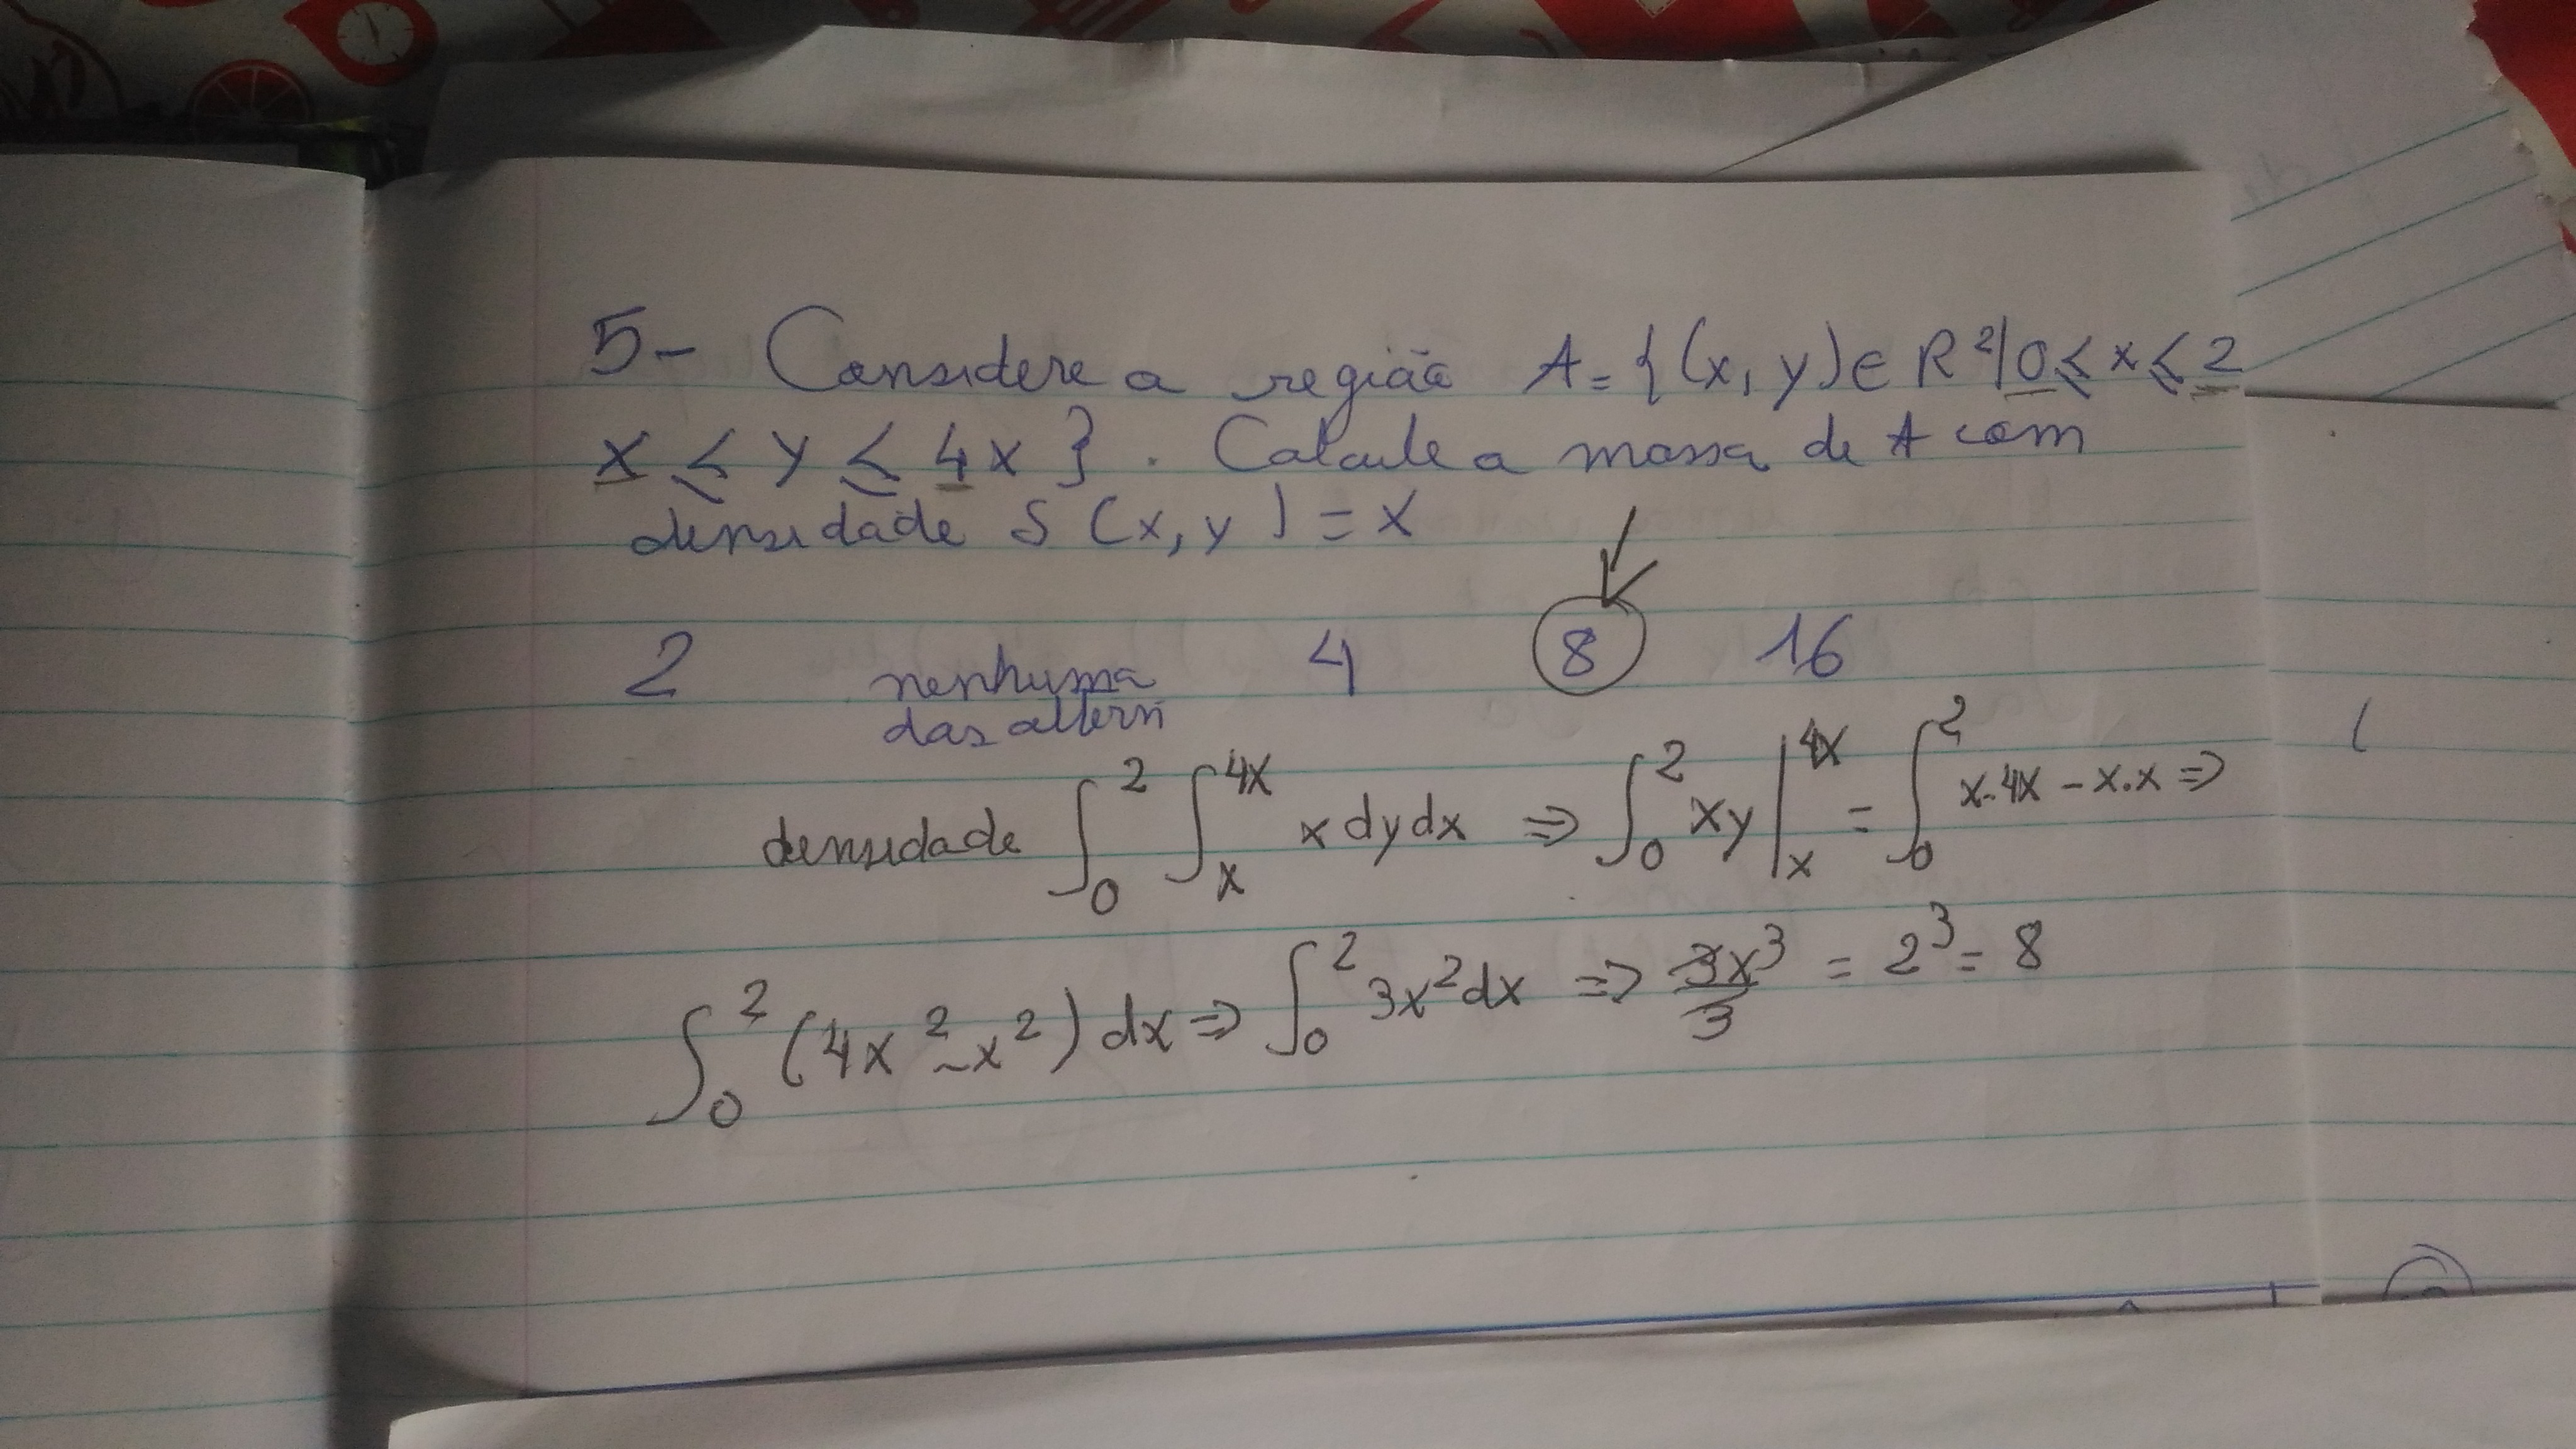 5- Considere a região A = {(x, y) ∈ R²| 0 ≤ x ≤ 2
x ≤ y ≤ 4x }. Calcule a massa de A com
densidade δ (x, y) = x
2 nenhuma das altern 4 8 16
densidade ∫₀² ∫ₓ⁴ˣ x dy dx ⇒ ∫₀² xy |ₓ⁴ˣ = ∫₀² x·4x - x·x ⇒
∫₀² (4x² - x²) dx ⇒ ∫₀² 3x² dx ⇒ 3x³/3 = 2³ = 8